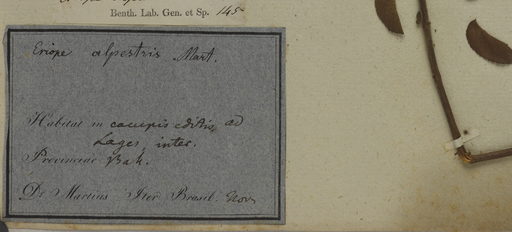 Benth. Lab. Gen. et Sp. 145
Eriope alpestris Mart.
Habitat in campis editis, ad
Lages, inter.
Provinciae Bah.
Dr Martius Iter Brasil. Nov.